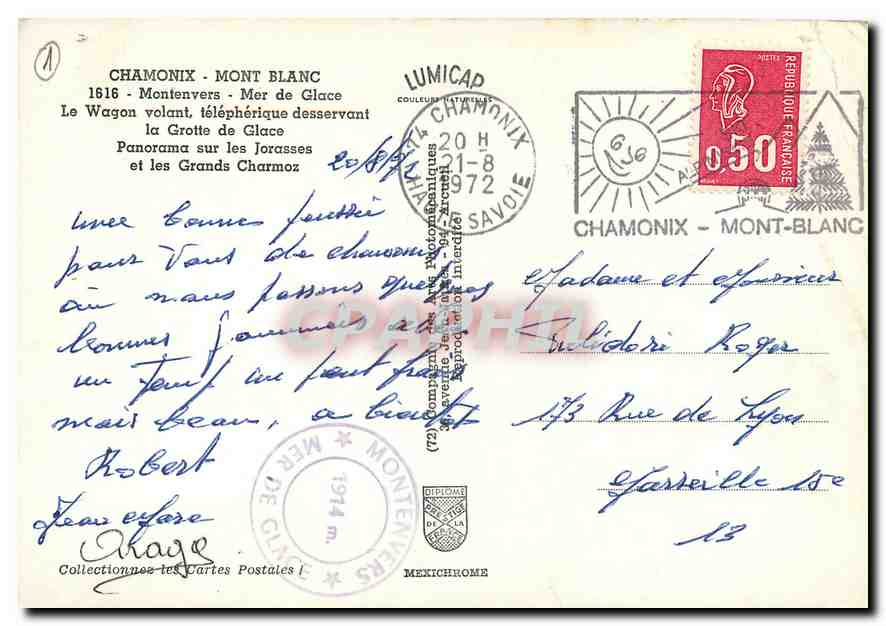 1
CHAMONIX - MONT BLANC
1616 - Montenvers - Mer de Glace
Le Wagon volant, téléphérique desservant
la Grotte de Glace
Panorama sur les Jorasses
et les Grands Charmoz
20/8/72
LUMICAP
COULEURS NATURELLES
74 CHAMONIX
20 H
21-8
1972
HAUTE SAVOIE
POSTES
REPUBLIQUE FRANÇAISE
0,50
CHAMONIX - MONT-BLANC
une bonne pensée
pour Vous de chamonix
où nous passons quelques
bonnes journées
un temps un peut frais
mais beau, a bientot
Robert
Jean Marc
Madame et Monsieur
Polidori Roger
173 Rue de Lyon
Marseille 15e
13
(72) Compagnie des Arts Photomécaniques
36, avenue Jean-Jaurès - 94 - Arcueil
Reproduction interdite
CPAPHIL
MONTENVERS
MER DE GLACE
1914 m.
DIPLOME
PRESTIGE
DE LA
FRANCE
Collectionnez les Cartes Postales !
MEXICHROME